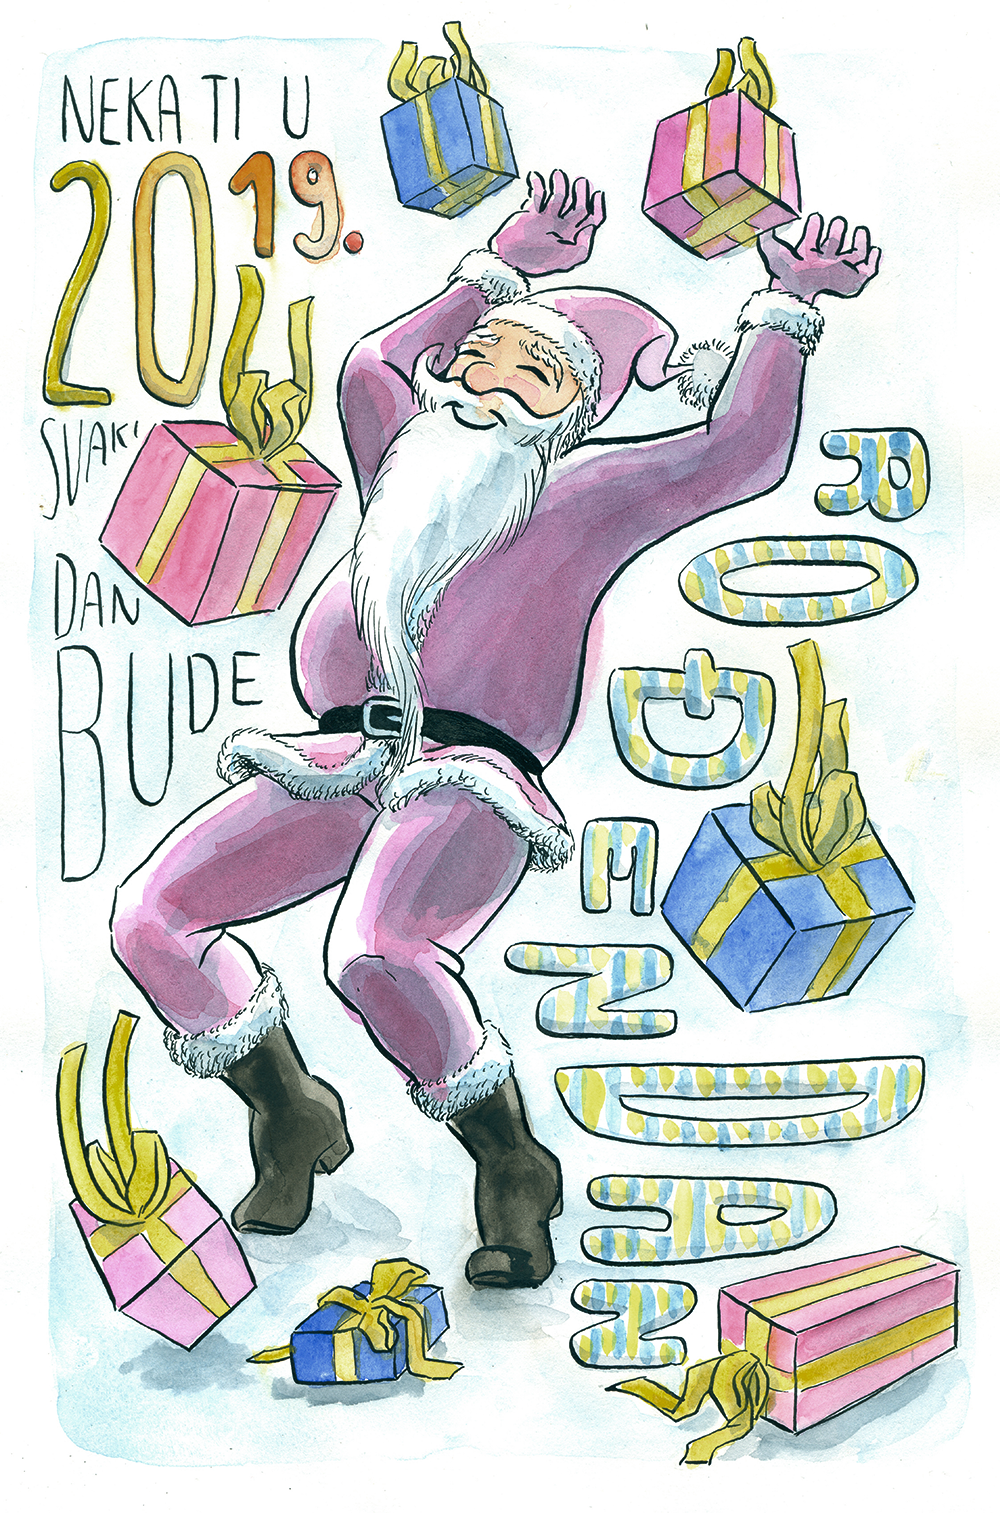 NEKA TI U
2019.
SVAKI
DAN
BUDE
ROĐENDAN